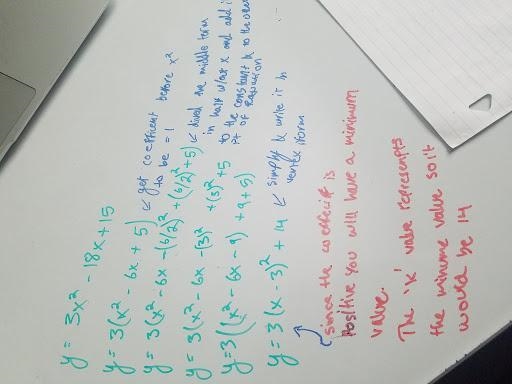 y = 3x² - 18x + 15
y = 3(x² - 6x + 5) ↙ get coefficient before x²
to be = 1
y = 3(x² - 6x - (6/2)² + (6/2)² + 5) ↙ divid the middle term
in half w/out x and add it
to the constant & to the
pt of equation
y = 3(x² - 6x - (3)² + (3)² + 5
y = 3((x² - 6x - 9) + 9 + 5)
y = 3(x - 3)² + 14 ↙ simplify & write it in
vertex form
since the coefficient is
positive you will have a minimum
value.
The 'k' value represents
the minimum value so it
would be 14